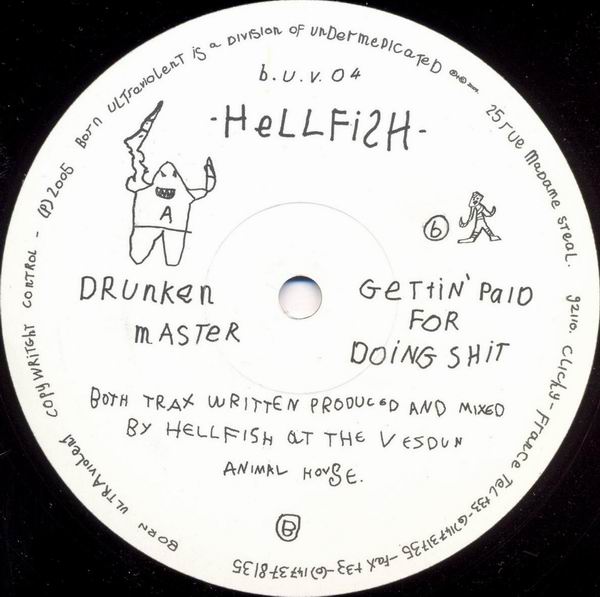 BORN ULTRAVIOLENT IS a DIVISION OF UNDERMEDICATED
25 rUE MADAME STEAL. 92110. CLICHY-FraNCE Tel +33-(0)14731735.-FaX +33-(0)147378135
BORN ULTRAVIOLENT COPYWRITGHT CONTROL - (P) 2005
b.U.V.04
-HeLLFiSH-
A
b
DRUNKEN
MASTER
GETTIN' PAID
FOR
DOING SHIT
BOTH TRAX WRITTEN PRODUCED AND MIXED
BY HELLFISH at THE VESDUN
ANIMAL HOUSE.
B